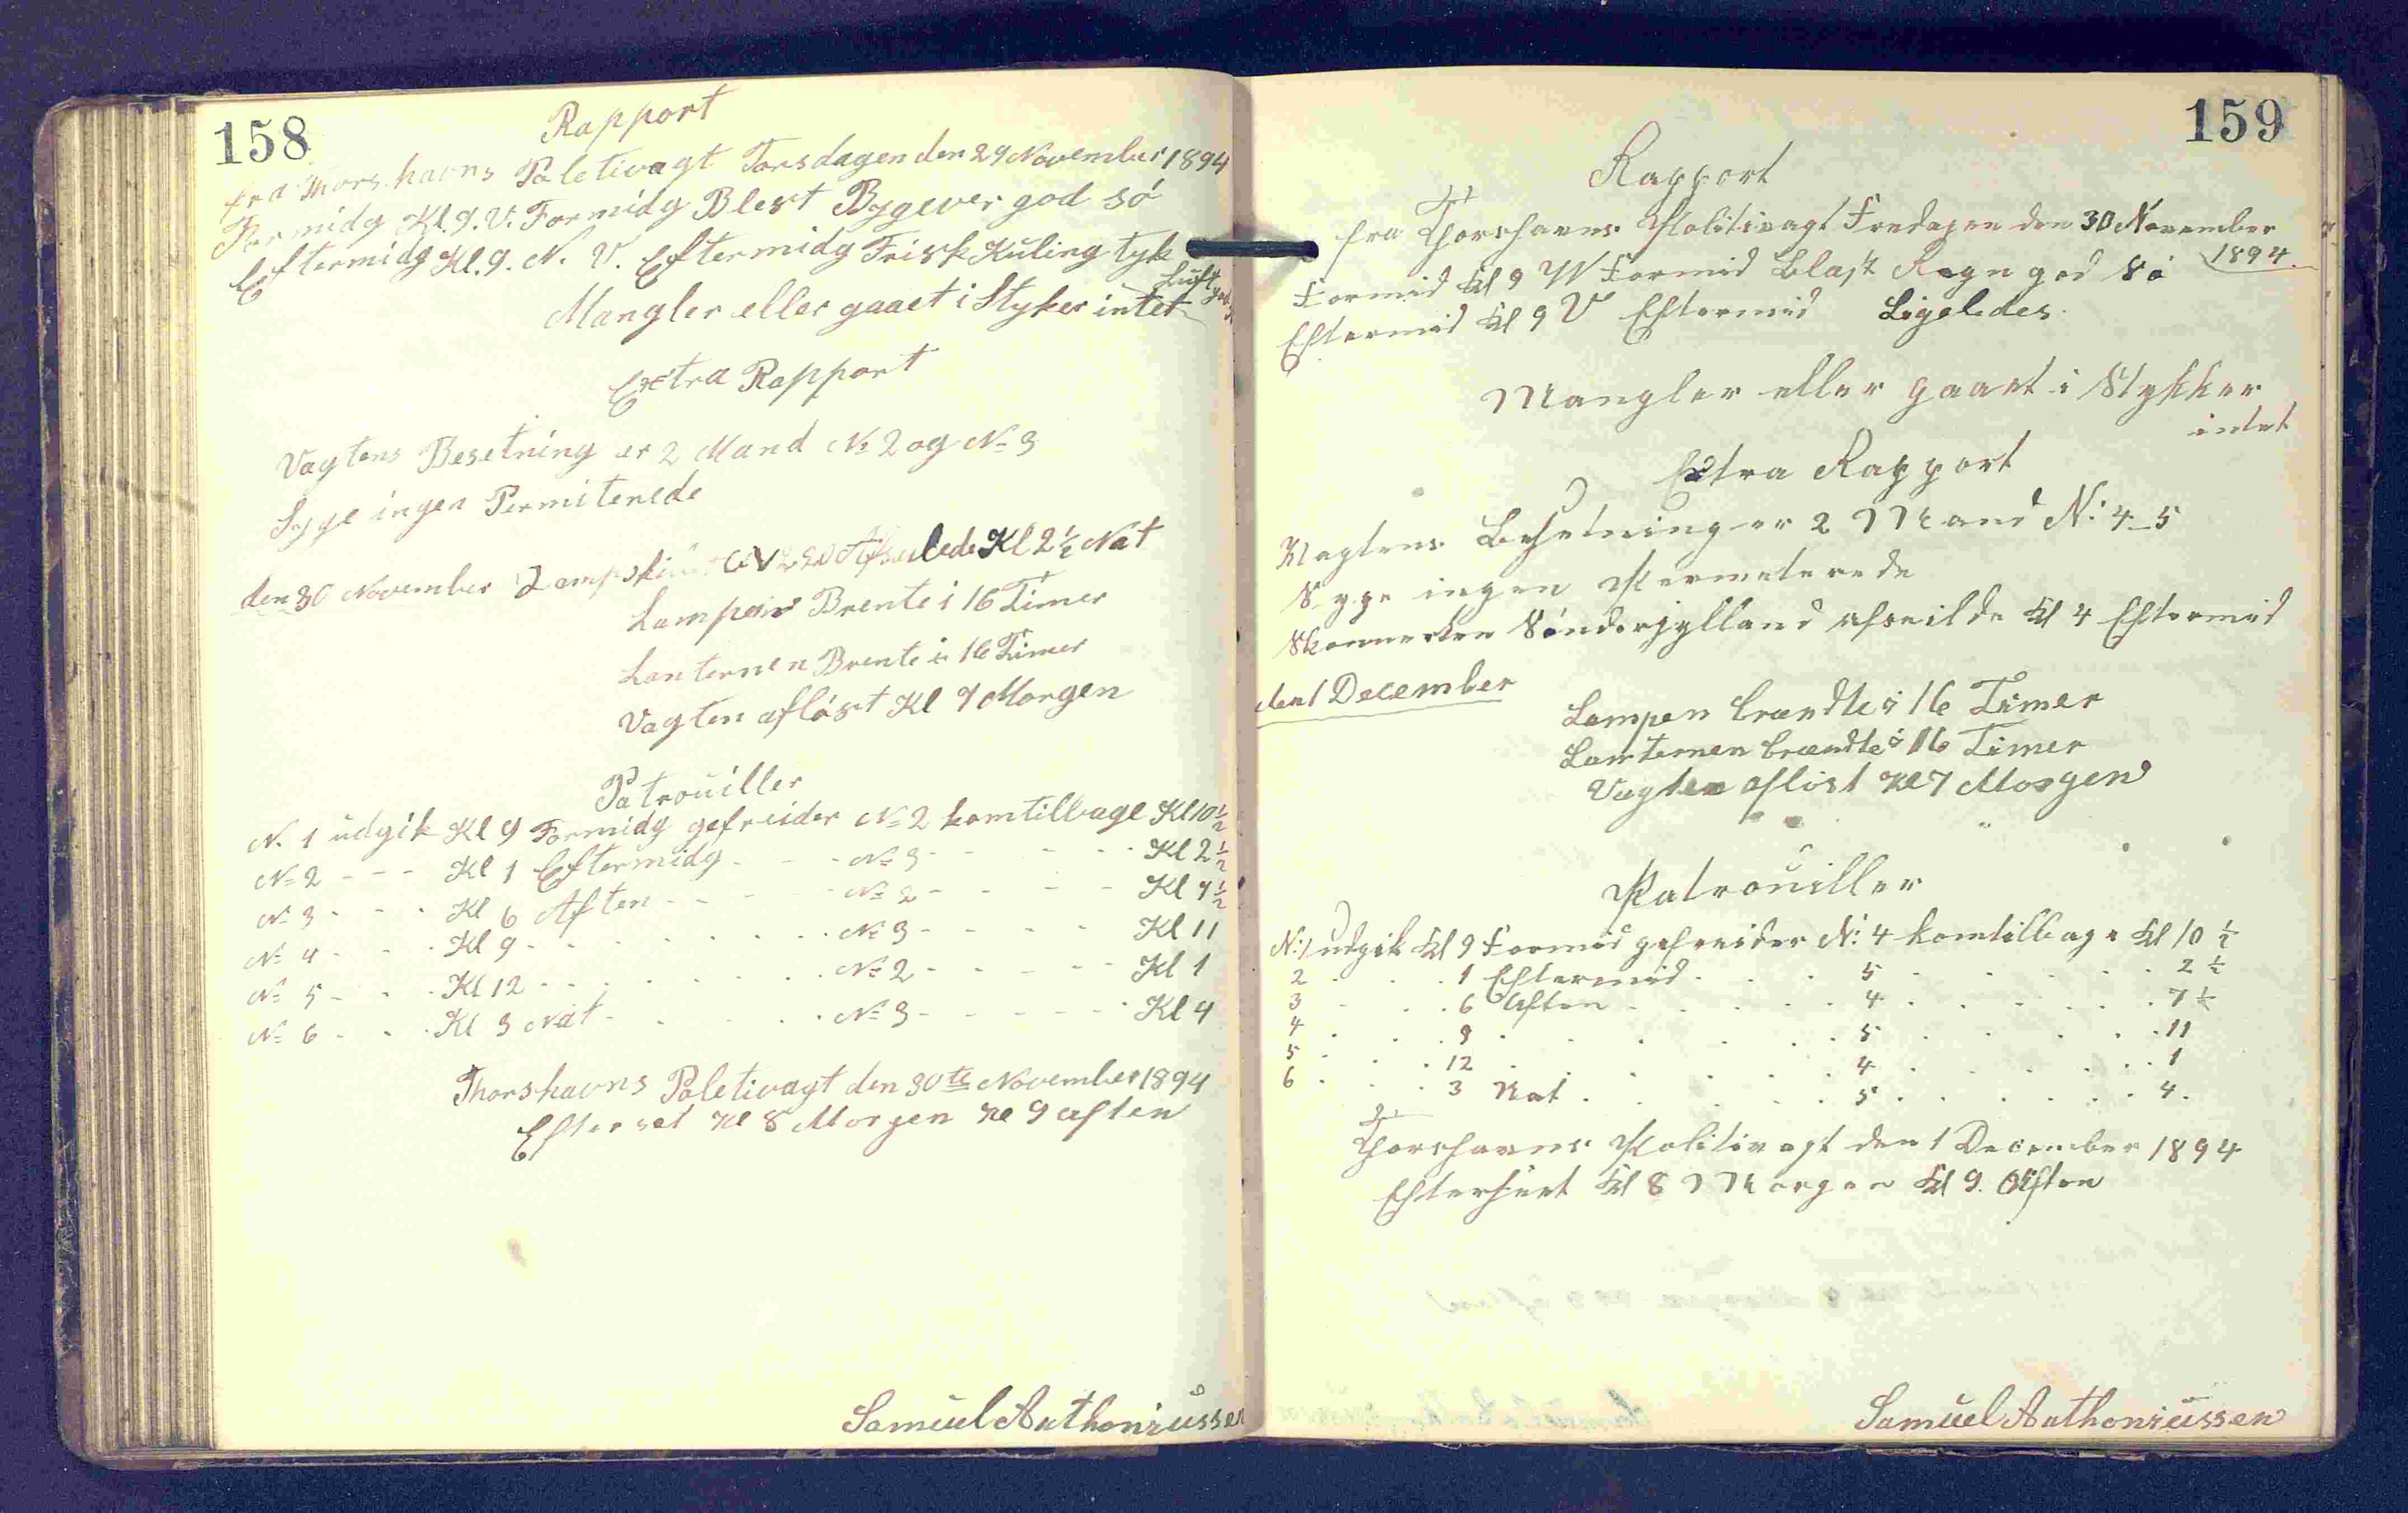 158
Rapport
fra Thorshavns Poletivagt Torsdagen den 29 November 1894
Formidg Kl. 9. V. Formidg Blest Bygever god Só
Eftermidg Kl. 9. N. V. Eftermidg Frisk Kuling tyk
Luft god
Mangler eller gaaet i Styker intet
Extra Rapport
Vagtens Besetning er 2 Mand No 2 og No 3
Syge ingen Permiterede
den 30 November Kl 2 1/2 Nat
Lampen Brente i 16 Timer
Lanternen Brente i 16 Timer
Vagten aflóst Kl 7 Morgen
Patrouiller
N. 1 udgik Kl 9 Formidg gefreider No 2 komtilbage Kl 10 1/2
No 2 - - - Kl 1 Eftermidg - - - No 3 - - - - Kl 2 1/2
No 3 - - - Kl 6 Aften - - - No 2 - - - - Kl 7 1/2
No 4 - - - Kl 9 - - - - - - No 3 - - - - Kl 11
No 5 - - - Kl 12 - - - - - - No 2 - - - - Kl 1
No 6 - - - Kl 3 Nat - - - - No 3 - - - - Kl 4
Thorshavns Poletivagt den 30te November 1894
Efterset Kl 8 Morgen Kl 9 Aften
Samuel Anthoniussen
159
Rapport
fra Thorshavns Politivagt Fredagen den 30 November
1894.
Formid Kl 9 W Formid Blast Regn god Só
Eftermid Kl 9 V Eftermid Ligeledes.
Mangler eller gaaet i Stykker
intet
Extra Rapport
Vagtens Besetning er 2 Mand N: 4-5
Syge ingen Permeterede
Skonnerten Sónderjylland afseilde Kl 4 Eftermid
den 1 December
Lampen brændte i 16 Timer
Lanternen brændte i 16 Timer
Vagten aflóst Kl 7 Morgen
Patrouiller
N: 1 udgik Kl 9 Formid gefreider N: 4 komtilbage Kl 10 1/2
2 . . . 1 Eftermid . . . 5 . . . . . 2 1/2
3 . . . 6 Aften . . . . 4 . . . . . 7 1/2
4 . . . 9 . . . . . . 5 . . . . . 11
5 . . . 12 . . . . . . 4 . . . . . 1
6 . . . 3 Nat . . . . . 5 . . . . . 4.
Thorshavns Politivagt den 1 December 1894
Efterseet Kl 8 Morgen Kl 9. Aften
Samuel Anthoniussen